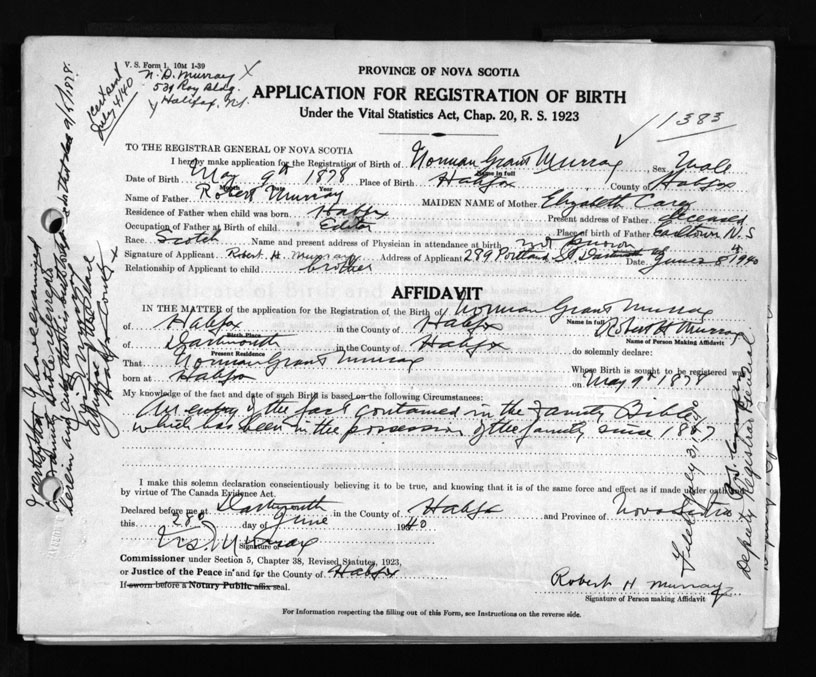 V. S. Form 1. 10M 1-39
N. D. Murray X
539 Roy Bldg.
Halifax, N.S.
Cert sent
July 4/40
PROVINCE OF NOVA SCOTIA
APPLICATION FOR REGISTRATION OF BIRTH
Under the Vital Statistics Act, Chap. 20, R. S. 1923
1383
TO THE REGISTRAR GENERAL OF NOVA SCOTIA
I hereby make application for the Registration of Birth of Norman Grant Murray Sex Male
Name in full
Date of Birth May 9th 1878 Place of Birth Halifax County of Halifax
Month Date Year
Name of Father Robert Murray MAIDEN NAME of Mother Elizabeth Carey
Residence of Father when child was born Halifax Present address of Father deceased
Occupation of Father at Birth of child Editor Place of birth of Father Earltown N.S
Race Scotch Name and present address of Physician in attendance at birth not known
Signature of Applicant Robert H. Murray Address of Applicant 289 Portland St Dartmouth Date June 28th 1940
Relationship of Applicant to child brother
AFFIDAVIT
IN THE MATTER of the application for the Registration of the Birth of Norman Grant Murray
Name in full
of Halifax in the County of Halifax Robert H Murray
Name of Person Making Affidavit
of Dartmouth in the County of Halifax do solemnly declare:
Present Residence
That Norman Grant Murray Whose Birth is sought to be registered was
born at Halifax on May 9th 1878
My knowledge of the fact and date of such Birth is based on the following Circumstances:
An entry of the fact contained in the Family Bible
which has been in the possession of the family since 1867
I make this solemn declaration conscientiously believing it to be true, and knowing that it is of the same force and effect as if made under oath and
by virtue of The Canada Evidence Act.
Declared before me at Dartmouth in the County of Halifax and Province of Nova Scotia
this 28th day of June 1940
Signature of
Commissioner under Section 5, Chapter 38, Revised Statutes, 1923,
or Justice of the Peace in and for the County of Halifax
If sworn before a Notary Public affix seal.
Robert H Murray
Signature of Person making Affidavit
For Information respecting the filling out of this Form, see Instructions on the reverse side.
I certify that I have examined
a family bible
herein and certify that
Halifax County
Filed July 3, 1940
Deputy Registrar General